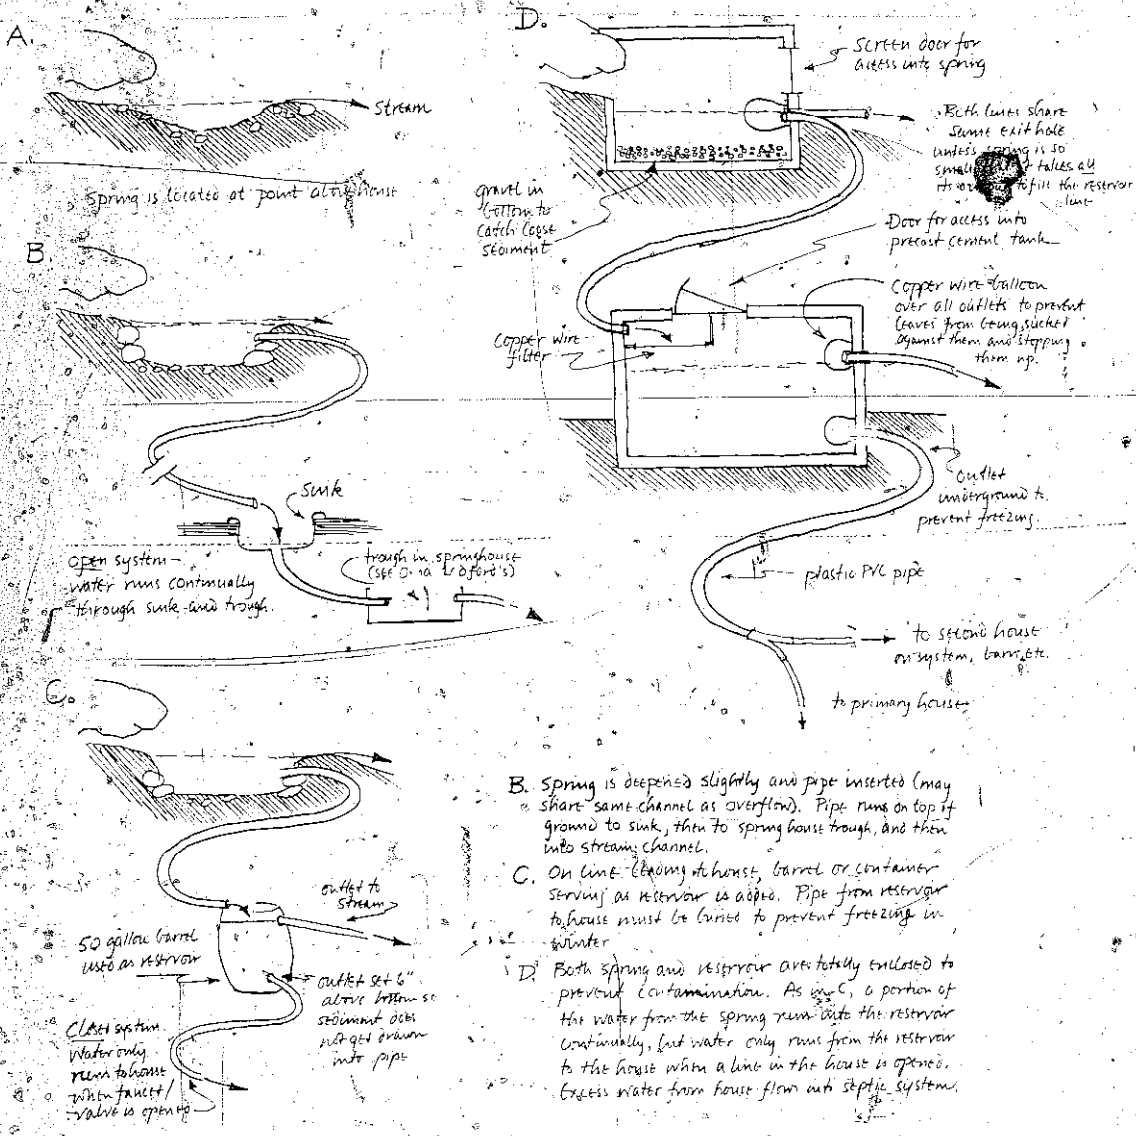 A.
Stream
Spring is located at point above house
B
Sink
open system —
water runs continually
through sink and trough.
trough in springhouse
C.
outlet to
stream
50 gallon barrel
used as reservoir
outlet set 6"
above bottom so
sediment does
not get drawn
into pipe
Closed system
Water only
runs to house
when faucet/
valve is opened
D.
Screen door for
access into spring
Both lines share
same exit hole
unless spring is so
small takes all
its to fill the reservoir
line
gravel in
bottom to
catch loose
sediment
Door for access into
precast cement tank
Copper wire
filter
Copper wire balloon
over all outlets to prevent
leaves from being sucked
against them and stopping
them up.
outlet
underground to
prevent freezing.
plastic PVC pipe
to second house
on system, barn, etc.
to primary house
B. Spring is deepened slightly and pipe inserted (may
share same channel as overflow). Pipe runs on top of
ground to sink, then to spring house trough, and then
into stream channel.
C. On line leading to house, barrel or container
serving as reservoir is added. Pipe from reservoir
to house must be buried to prevent freezing in
winter
D. Both spring and reservoir are totally enclosed to
prevent contamination. As in C, a portion of
the water from the spring runs into the reservoir
continually, but water only runs from the reservoir
to the house when a line in the house is opened.
Excess water from house flows into septic system.